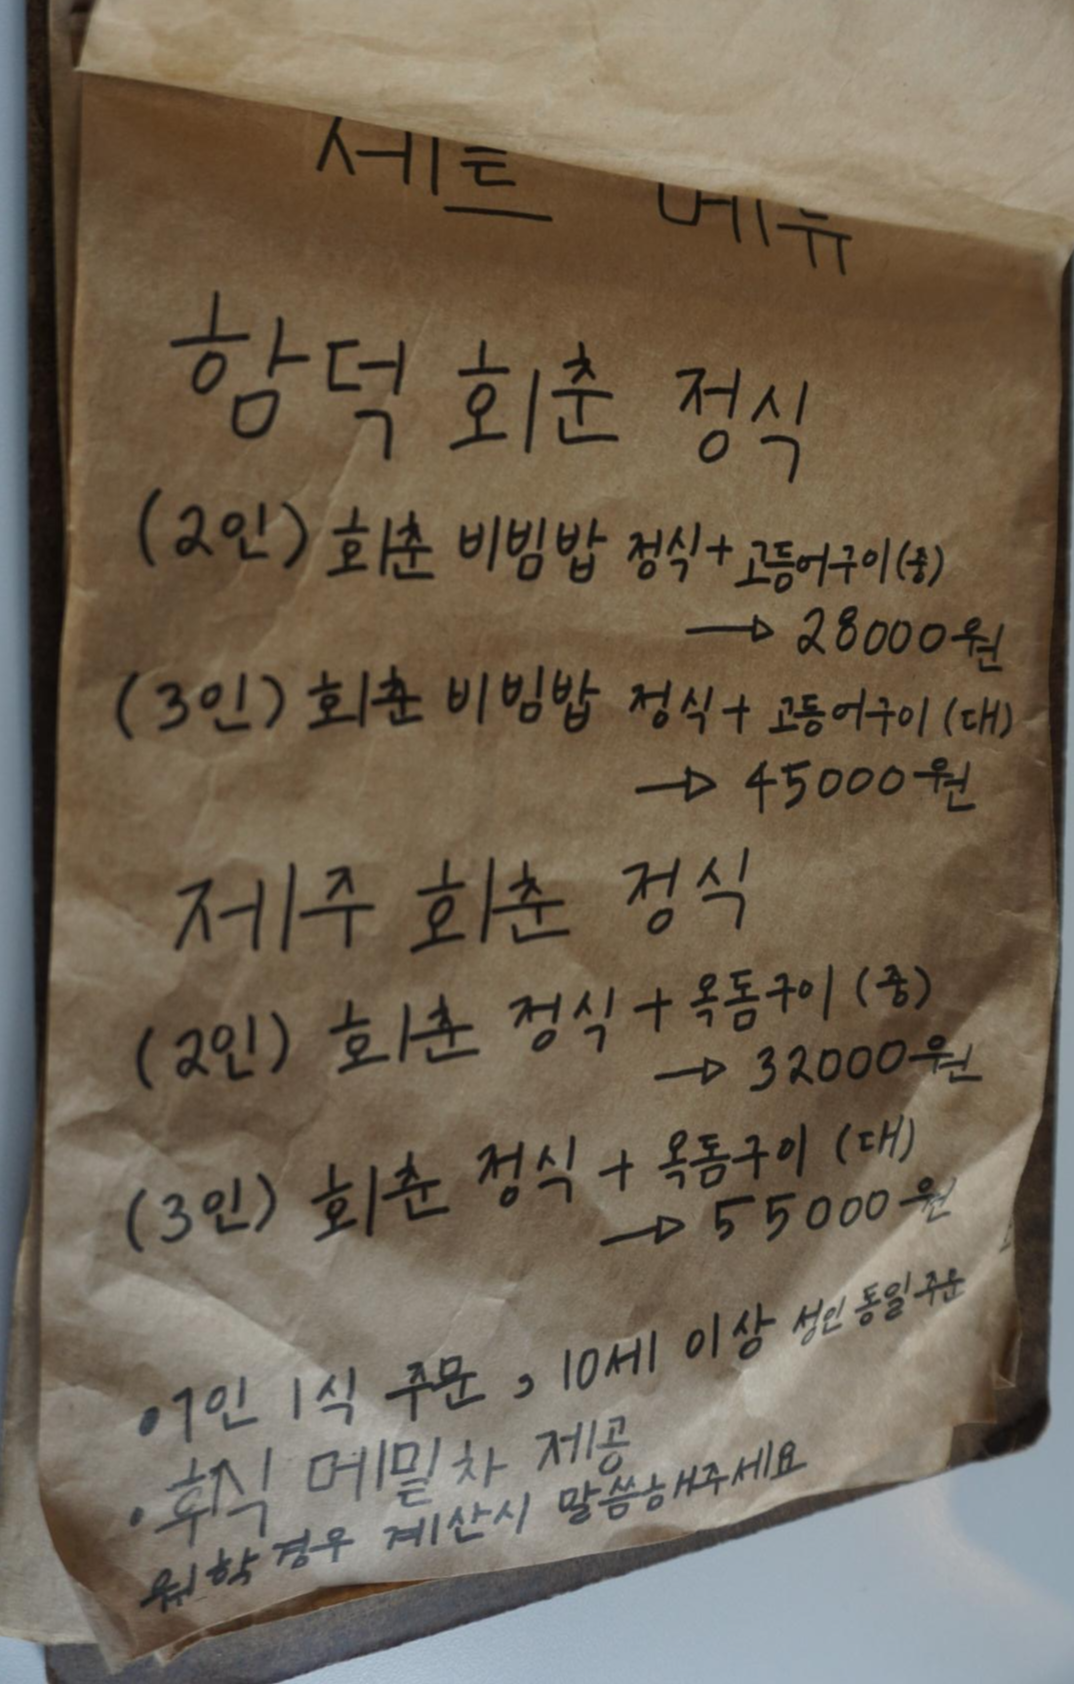 세트 메뉴
함덕 회춘 정식
(2인) 회춘 비빔밥 정식+고등어구이(중)
→ 28000원
(3인) 회춘 비빔밥 정식+ 고등어구이 (대)
→ 45000원
제주 회춘 정식
(2인) 회춘 정식 + 옥돔구이 (중)
→ 32000원
(3인) 회춘 정식 + 옥돔구이 (대)
→ 55000원
•1인 1식 주문, 10세 이상 성인 동일 주문
•후식 메밀차 제공
원할 경우 계산시 말씀해주세요